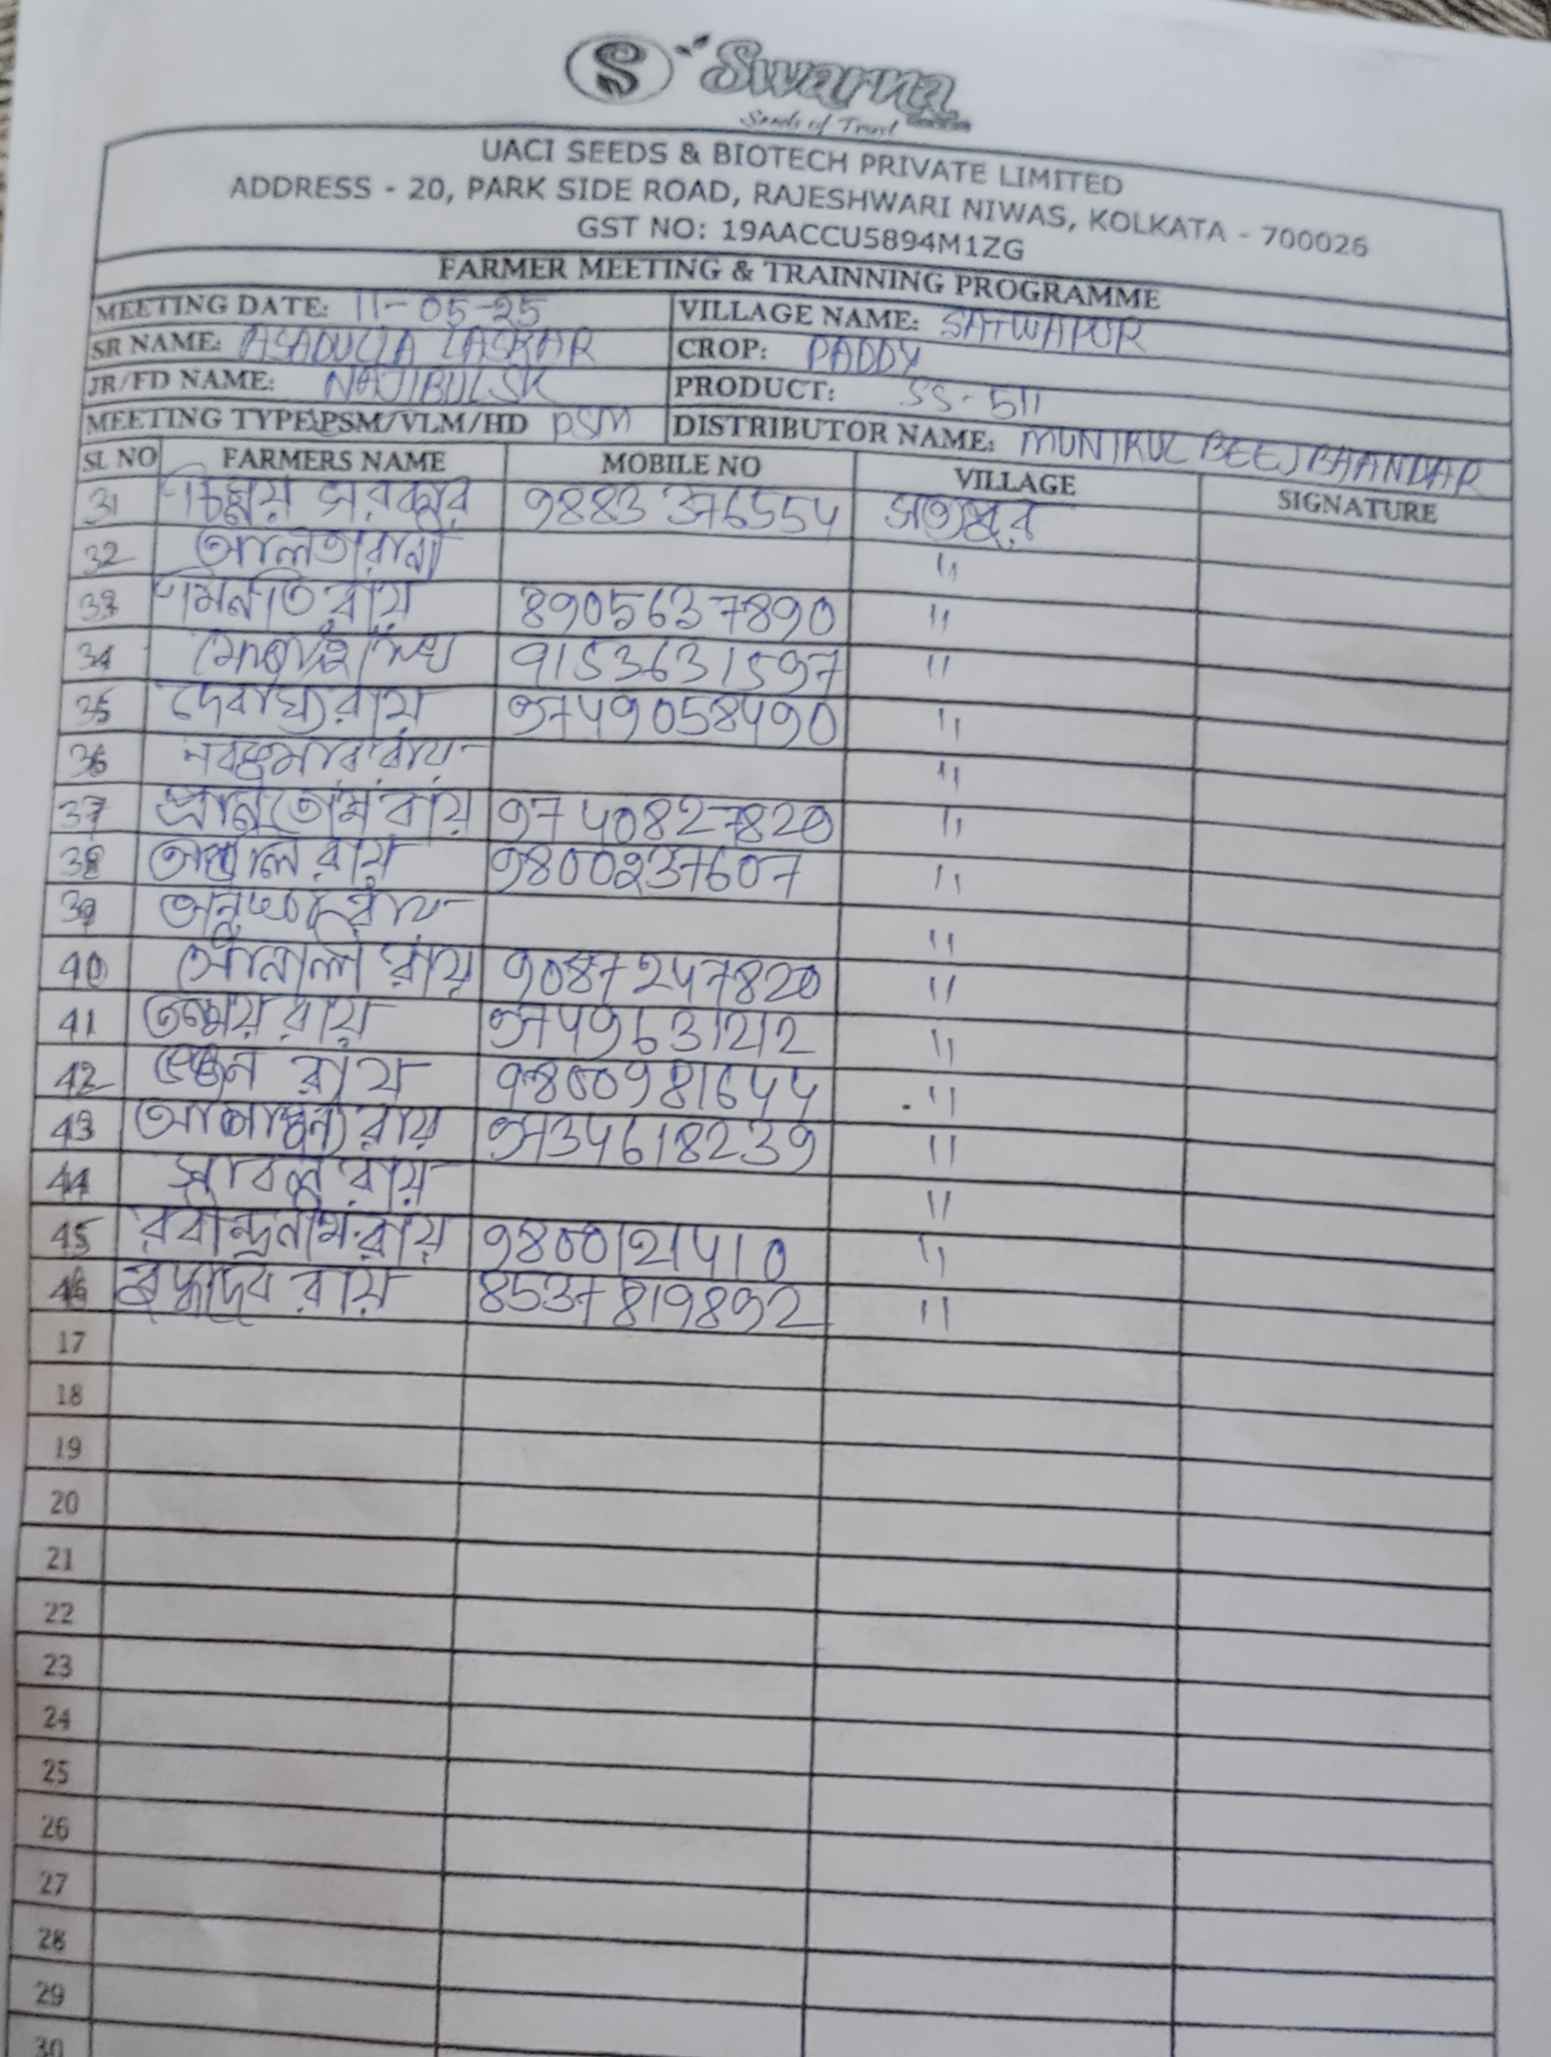 S Swarna
Seeds of Trust
UACI SEEDS & BIOTECH PRIVATE LIMITED
ADDRESS - 20, PARK SIDE ROAD, RAJESHWARI NIWAS, KOLKATA - 700026
GST NO: 19AACCU5894M1ZG
FARMER MEETING & TRAINNING PROGRAMME
MEETING DATE: 11-05-25 VILLAGE NAME: SATWAPUR
SR NAME: ASADULLA LASKAR CROP: PADDY
JR/FD NAME: NAJIBUL SK PRODUCT: SS-511
MEETING TYPE PSM/VLM/HD PSM DISTRIBUTOR NAME: MUNIRUL BEEJ BHANDAR
SL NO FARMERS NAME MOBILE NO VILLAGE SIGNATURE
31 চিন্ময় সরকার 9883376554
32 "
33 মিনতি রায় 8905637890 "
34 9153631597 "
35 রায় 9749058490 "
36 নবকুমার রায় "
37 রায় 9740827820 "
38 রায় 9800237607 "
39 রায় "
40 রায় 9087247820 "
41 তন্ময় রায় 9749631212 "
42 রায় 9800981644 "
43 রায় 9734618239 "
44 রায় "
45 রবীন্দ্রনাথ রায় 9800121410 "
46 বুদ্ধদেব রায় 8537819892 "
17
18
19
20
21
22
23
24
25
26
27
28
29
30